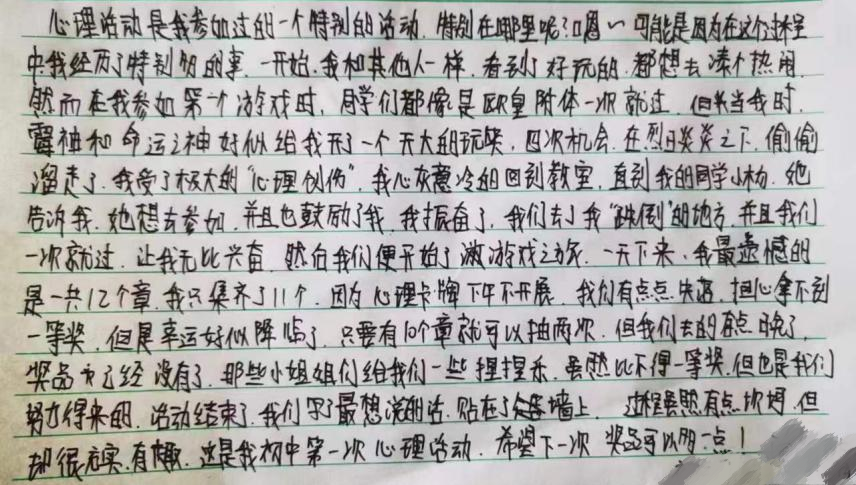 心理活动是我参加过的一个特别的活动，特别在哪里呢？嗯~可能是因为在这个过程
中我经历了特别的的事。一开始，我和其他人一样，看到了好玩的，都想去凑个热闹，
然而在我参加第一个游戏时，同学们都像是欧皇附体一次就过，但当我时，
雷神和命运之神好似给我开了一个天大的玩笑，四次机会，在烈日炎炎之下，偷偷
溜走了，我受了极大的“心理创伤”，我心灰意冷的回到教室，直到我的同学小杨，她
告诉我，她想去参加，并且也鼓励了我，我振奋了，我们去了我“跌倒”的地方，并且我们
一次就过，让我无比兴奋，然后我们便开始了游戏之旅。一天下来，我最遗憾的
是一共12个章，我只集齐了11个，因为心理卡牌下午不开展，我们有点点失落，担心拿不到
一等奖，但是幸运好似降临了，只要有10个章就可以抽两次，但我们去的有点晚了，
奖品已经没有了，那些小姐姐们给我们一些捏捏乐，虽然比不得一等奖，但也是我们
努力得来的，活动结束了，我们写了最想说的话，贴在了墙上，过程虽然有点坎坷，但
却很充实，有趣，这是我初中第一次心理活动，希望下一次奖品可以多一点！